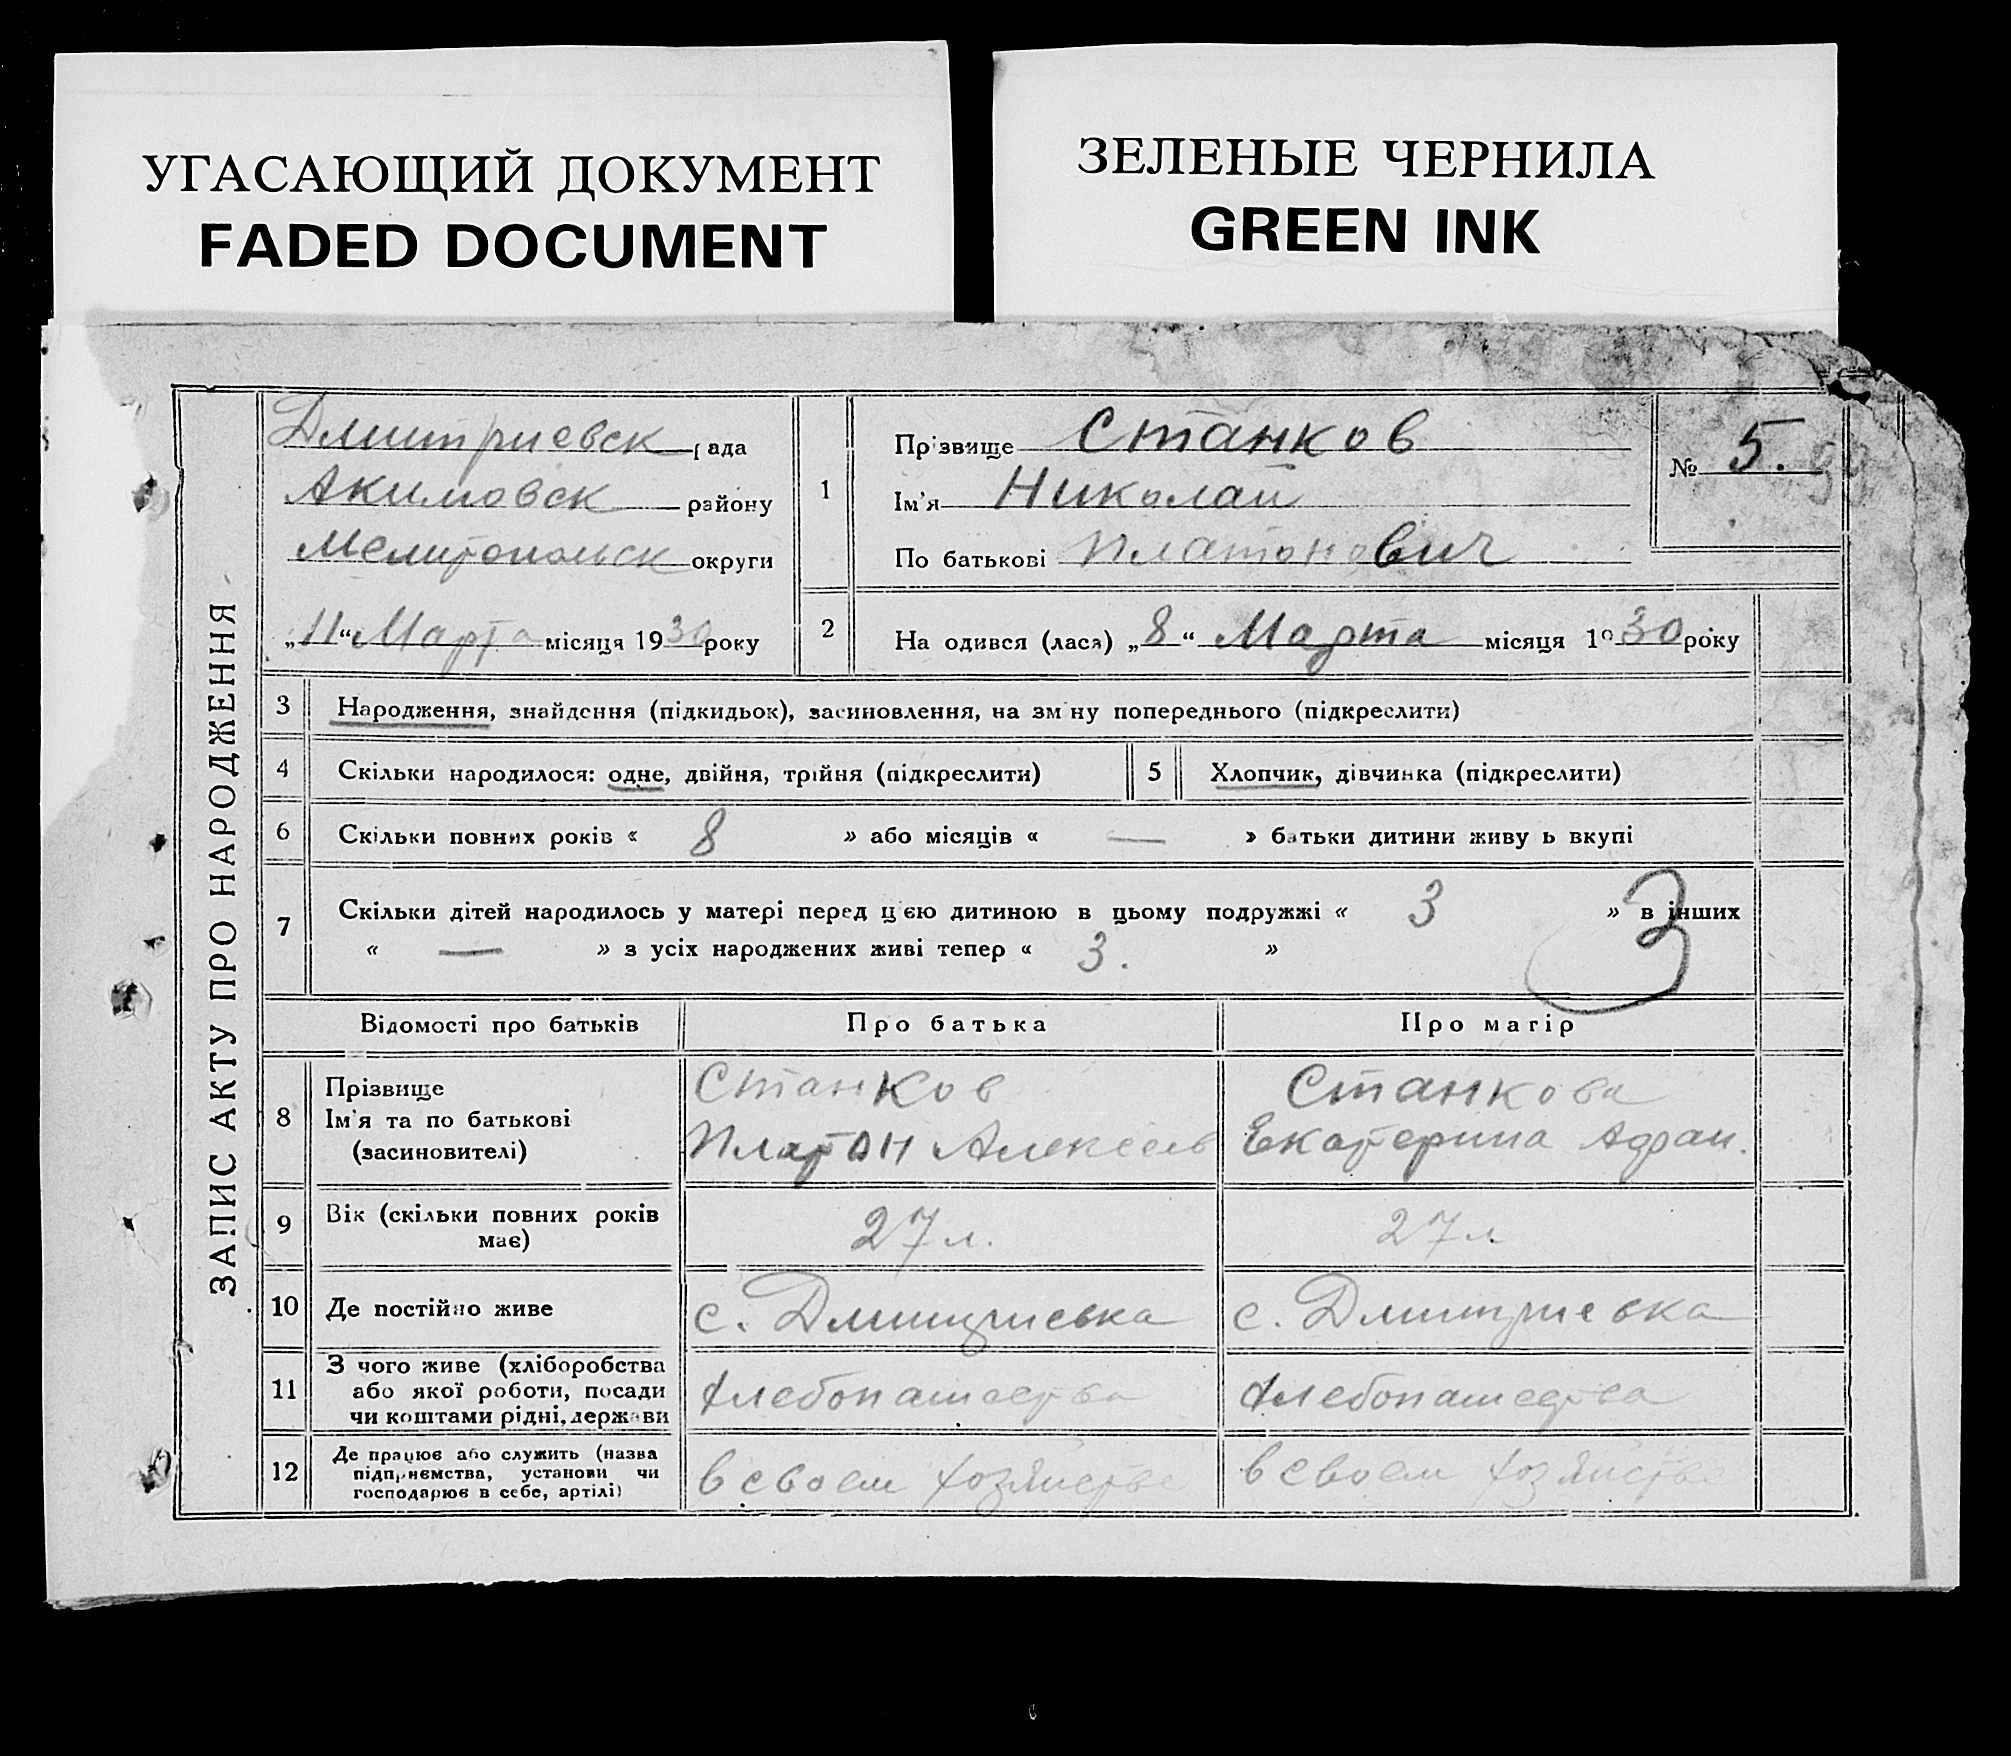 УГАСАЮЩИЙ ДОКУМЕНТ
FADED DOCUMENT
ЗЕЛЕНЫЕ ЧЕРНИЛА
GREEN INK
ЗАПИС АКТУ ПРО НАРОДЖЕННЯ
Дмитриевск рада
Акимовск району
Мелитопольск округи
„11“ Марта місяця 1930 року
1
Прізвище Станков
Ім'я Николай
По батькові Платонович
№ 5.
2
На одився (лася) „8“ Марта місяця 1930 року
3 Народження, знайдення (підкидьок), засиновлення, на зм ну попереднього (підкреслити)
4 Скільки народилося: одне, двійня, трійня (підкреслити) 5 Хлопчик, дівчинка (підкреслити)
6 Скільки повних років « 8 » або місяців « — » батьки дитини живу ь вкупі
7 Скільки дітей народилось у матері перед цією дитиною в цьому подружжі « 3 » в інших
« — » з усіх народжених живі тепер « 3. »
3
Відомості про батьків Про батька Про матір
8 Прізвище Станков Станкова
Ім'я та по батькові Платон Алексеев Екатерина Адран.
(засиновителі)
9 Вік (скільки повних років має) 27 л. 27 л
10 Де постійно живе с. Дмитриевка с. Дмитриевка
11 З чого живе (хліборобства
або якої роботи, посади
чи коштами рідні, держави
хлебопашества хлебопашества
12 Де працює або служить (назва
підприємства, установи чи
господарює в себе, артілі)
в своем хозяйстве в своем хозяйстве